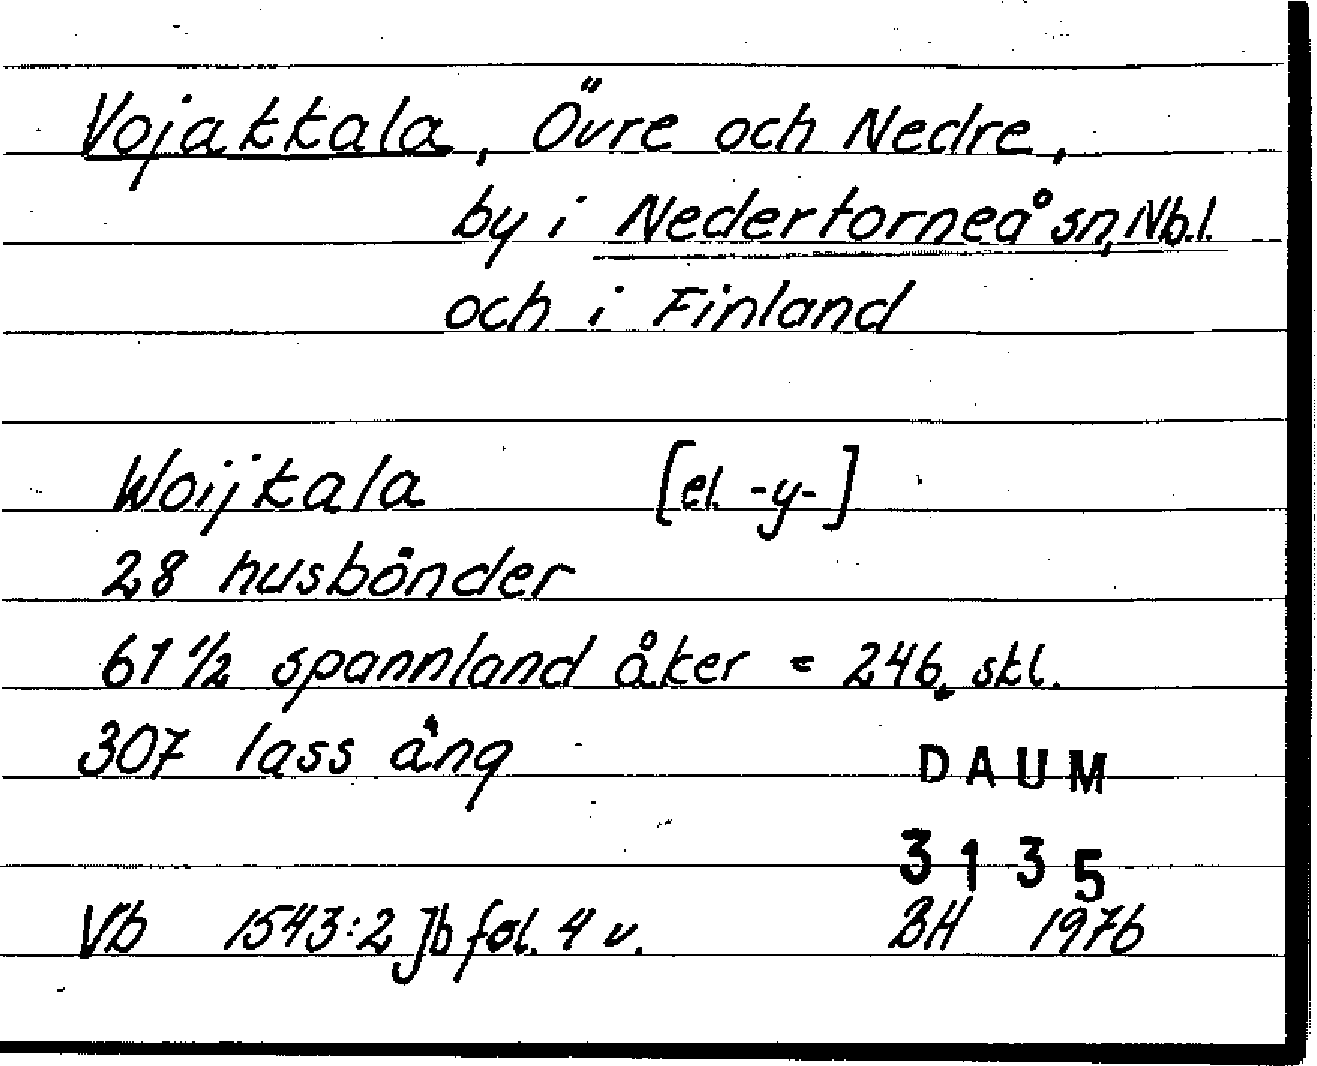 Vojakkala, Övre och Nedre,
by i Nedertorneå sn, Nb.l.
och i Finland
Woijkala [el. -y-]
28 husbönder
61 1/2 spannland åker = 246 skl.
307 lass äng
DAUM
3135
Vb 1543:2 Jb fol. 4 v. BH 1976